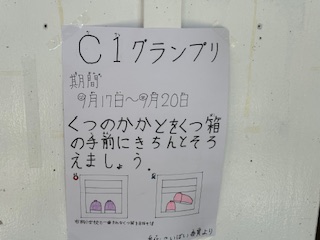 C1グランプリ
期間
9月17日～9月20日
くつのかかとをくつ箱
の手前にきちんとそろ
えましょう.